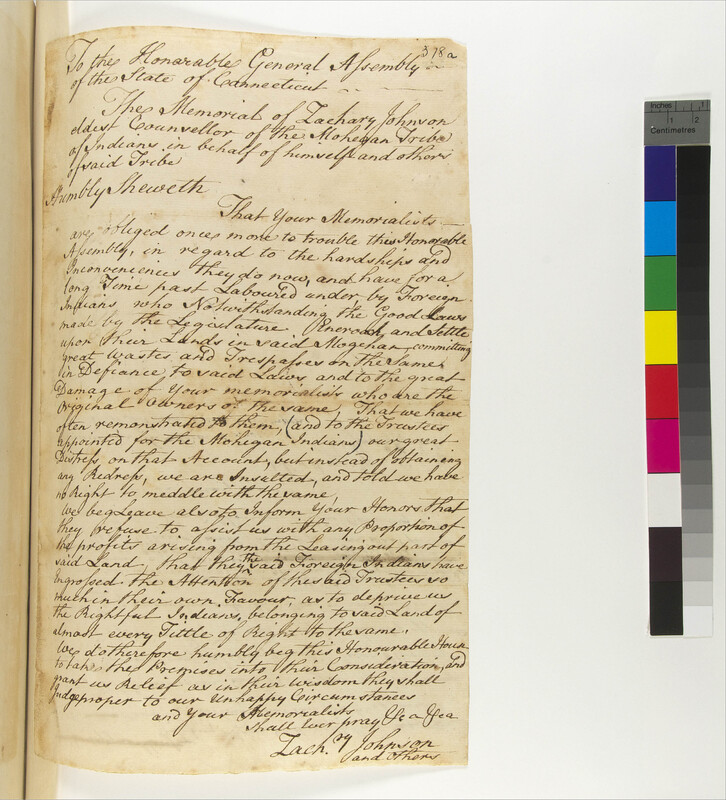 378a
To the Honarable General Assembly
of the State of Connecticut
The Memorial of Zachary Johnson
eldest Counsellor of the Mohegan Tribe
of Indians in behalf of himself and others
of said Tribe
Humbly Sheweth
That Your Memorialists
are obliged once more to trouble this Honorable
Assembly, in regard to the hardships and
Inconveniencies they do now, and have for a
long Time past Laboured under, by Foreign
Indians, who Notwithstanding the Good Laws
made by the Legislature, Encroach and Settle
upon their Lands in said Mogehan, committing
great Wastes and Trespasses on the Same,
in Defiance to said Laws, and to the great
Damage of Your memorialists who are the
Original Owners of the same, That we have
often remonstrated to them, (and to the Trustees
appointed for the Mohegan Indians) our great
Distress, on that Account, but instead of obtaining
any Redress, we are Insulted, and told we have
no Right to meddle with the same,
We beg Leave also to Inform Your Honors that
they refuse to assist us with any Proportion of
the profits arising from the Leasing out part of
said Land, that they the said Foreign Indians have
Engrossed the Attention of the said Trustees so
much in their own Favour, as to deprive us
the Rightful Indians, belonging to said Land of
almost every Tittle of Right to the same.
We do therefore humbly beg this Honourable House
to take the Premises into their Consideration, and
grant us Relief as in their wisdom they shall
Judge proper to our Unhappy Circumstances
and Your Memorialists
shall Ever pray &c a &c a
Zach.ry Johnson
and others
Inches 1
1 2
Centimetres